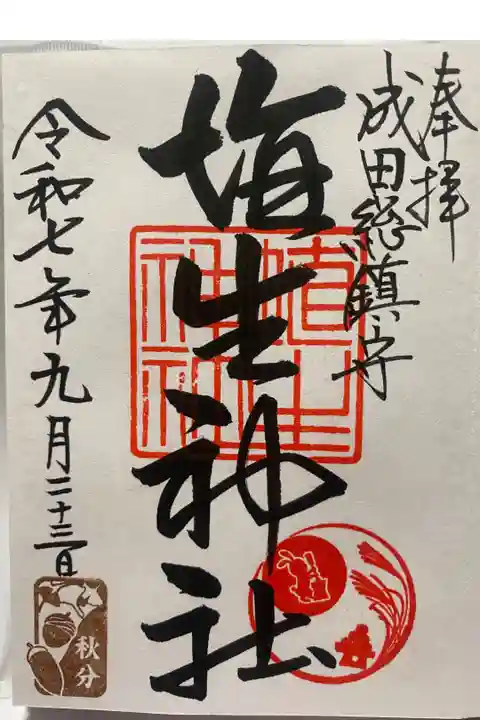 奉拝
成田総鎮守
埴生神社
埴生神社
令和七年九月二十三日
秋分